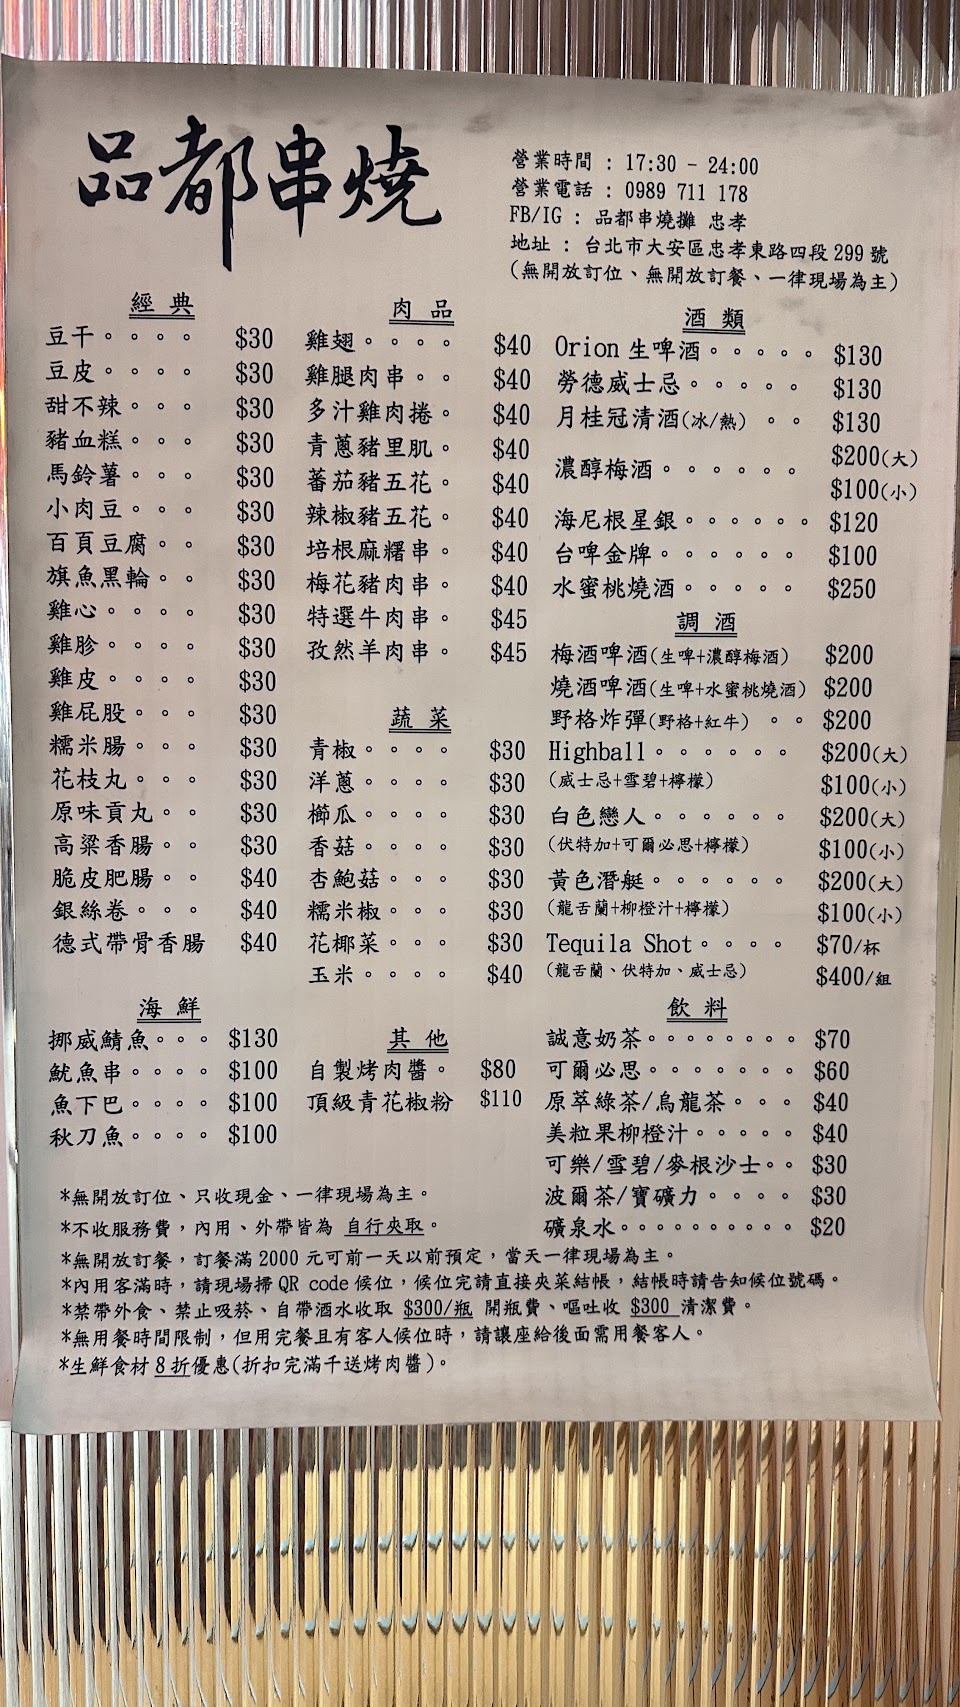 品都串燒
營業時間 : 17:30 - 24:00
營業電話 : 0989 711 178
FB/IG : 品都串燒攤 忠孝
地址 : 台北市大安區忠孝東路四段299號
(無開放訂位、無開放訂餐、一律現場為主)
經典
豆干。。。。 $30
豆皮。。。。 $30
甜不辣。。。 $30
豬血糕。。。 $30
馬鈴薯。。。 $30
小肉豆。。。 $30
百頁豆腐。。 $30
旗魚黑輪。。 $30
雞心。。。。 $30
雞胗。。。。 $30
雞皮。。。。 $30
雞屁股。。。 $30
糯米腸。。。 $30
花枝丸。。。 $30
原味貢丸。。 $30
高粱香腸。。 $30
脆皮肥腸。。 $40
銀絲卷。。。 $40
德式帶骨香腸 $40
海鮮
挪威鯖魚。。。 $130
魷魚串。。。。 $100
魚下巴。。。。 $100
秋刀魚。。。。 $100
肉品
雞翅。。。。 $40
雞腿肉串。。 $40
多汁雞肉捲。 $40
青蔥豬里肌。 $40
蕃茄豬五花。 $40
辣椒豬五花。 $40
培根麻糬串。 $40
梅花豬肉串。 $40
特選牛肉串。 $45
孜然羊肉串。 $45
蔬菜
青椒。。。。 $30
洋蔥。。。。 $30
櫛瓜。。。。 $30
香菇。。。。 $30
杏鮑菇。。。 $30
糯米椒。。。 $30
花椰菜。。。 $30
玉米。。。。 $40
其他
自製烤肉醬。 $80
頂級青花椒粉 $110
酒類
Orion生啤酒。。。。。 $130
勞德威士忌。。。。。 $130
月桂冠清酒(冰/熱) 。。 $130
濃醇梅酒。。。。。。 $200(大)
$100(小)
海尼根星銀。。。。。。 $120
台啤金牌。。。。。。 $100
水蜜桃燒酒。。。。。 $250
調酒
梅酒啤酒(生啤+濃醇梅酒) $200
燒酒啤酒(生啤+水蜜桃燒酒) $200
野格炸彈(野格+紅牛) 。。 $200
Highball。。。。。。 $200(大)
(威士忌+雪碧+檸檬) $100(小)
白色戀人。。。。。。 $200(大)
(伏特加+可爾必思+檸檬) $100(小)
黃色潛艇。。。。。。 $200(大)
(龍舌蘭+柳橙汁+檸檬) $100(小)
Tequila Shot。。。。 $70/杯
(龍舌蘭、伏特加、威士忌) $400/組
飲料
誠意奶茶。。。。。。。。 $70
可爾必思。。。。。。。 $60
原萃綠茶/烏龍茶。。。 $40
美粒果柳橙汁。。。。。 $40
可樂/雪碧/麥根沙士。。 $30
波爾茶/寶礦力。。。。 $30
礦泉水。。。。。。。。。 $20
*無開放訂位、只收現金、一律現場為主。
*不收服務費，內用、外帶皆為 自行夾取。
*無開放訂餐，訂餐滿2000元可前一天以前預定，當天一律現場為主。
*內用客滿時，請現場掃QR code候位，候位完請直接夾菜結帳，結帳時請告知候位號碼。
*禁帶外食、禁止吸菸、自帶酒水收取 $300/瓶 開瓶費、嘔吐收 $300 清潔費。
*無用餐時間限制，但用完餐且有客人候位時，請讓座給後面需用餐客人。
*生鮮食材8折優惠(折扣完滿千送烤肉醬)。